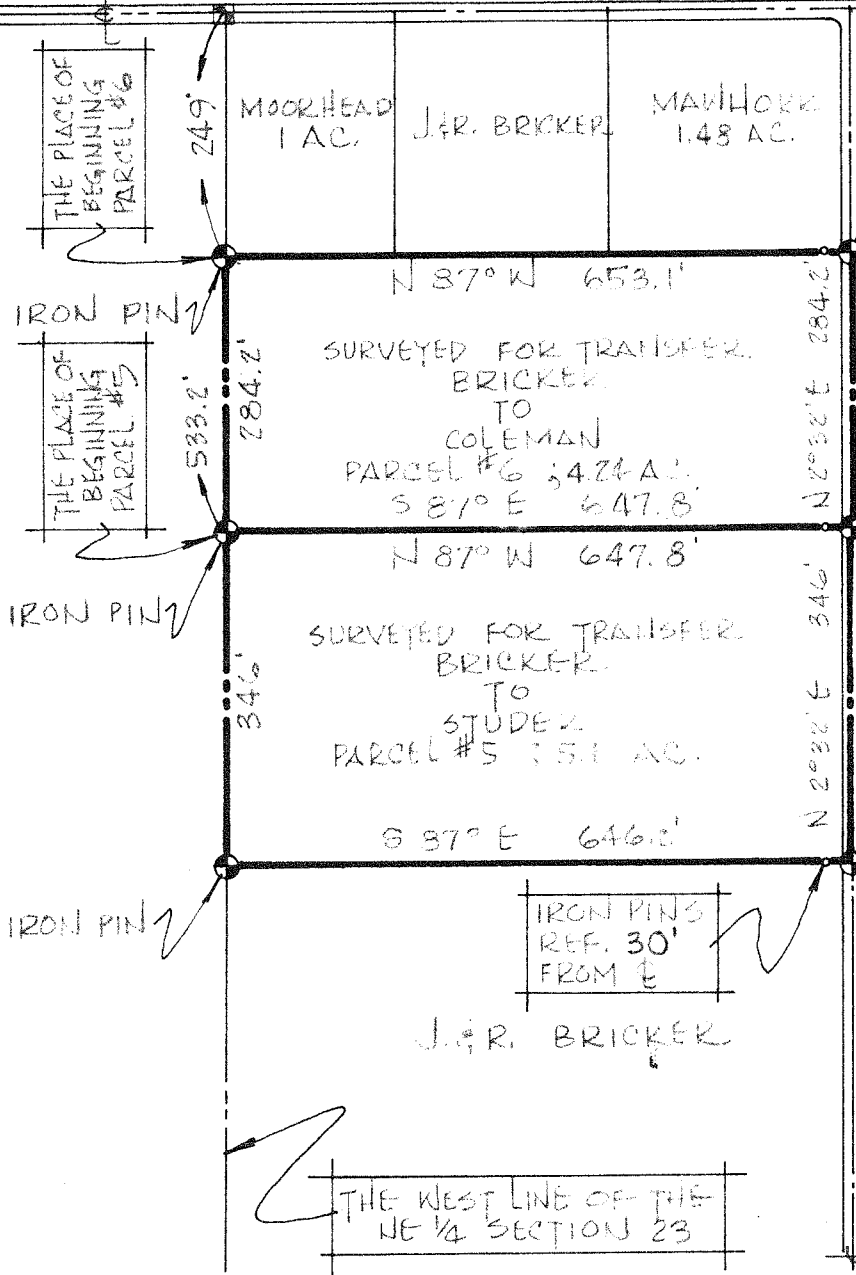 THE PLACE OF
BEGINNING
PARCEL #6
249'
MOORHEAD
1 AC.
J.&R. BRICKER
1.48 AC.
IRON PIN
N 87° W 653.1'
284.2'
N 2°32' E 284.2'
THE PLACE OF
BEGINNING
PARCEL #5
533.2'
SURVEYED FOR TRANSFER
BRICKER
TO
COLEMAN
PARCEL #6 ; 4.24 AC.
S 87° E 647.8'
IRON PIN
N 87° W 647.8'
346'
N 2°32' E 346'
SURVEYED FOR TRANSFER
BRICKER
TO
STUDER
PARCEL #5 : 5.1 AC.
S 87° E 646.2'
IRON PIN
IRON PINS
REF. 30'
FROM ℄
J.&R. BRICKER
THE WEST LINE OF THE
NE 1/4 SECTION 23